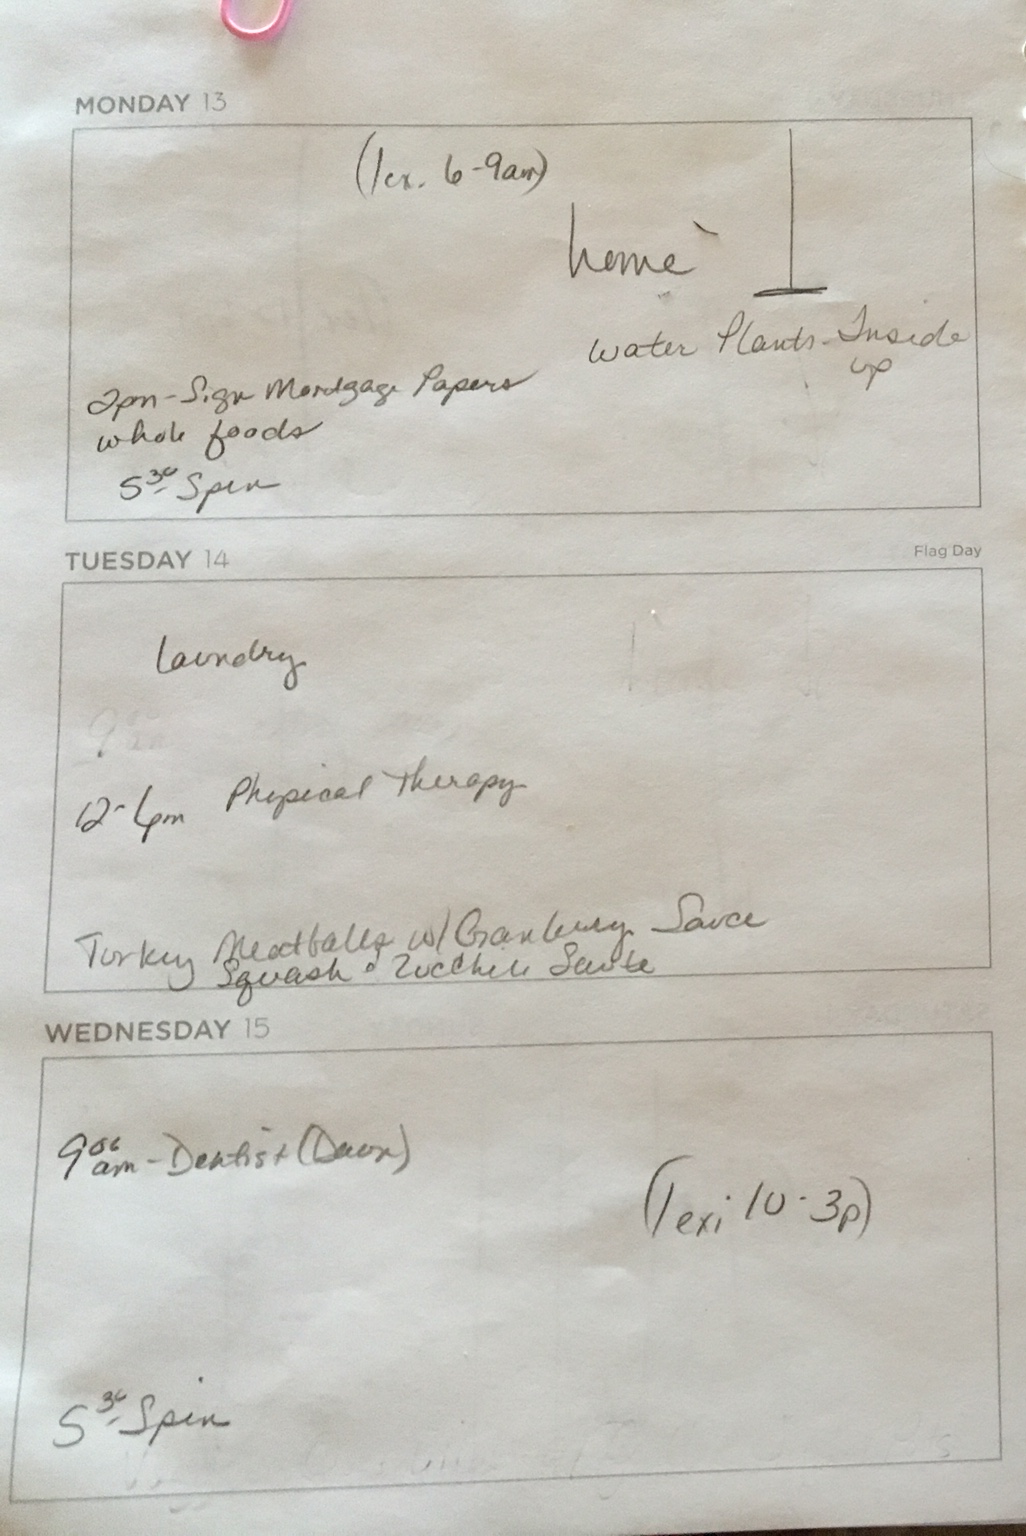 MONDAY 13
(lex. 6-9am)
home
water Plants-Inside
up
2pm-Sign Mortgage Papers
whole foods
5 30 Spin
TUESDAY 14
Flag Day
Laundry
Physical Therapy
Turkey Meatballs w/ Cranberry Sauce
Squash
WEDNESDAY 15
9 00 am - Dentist (Dawn)
(lexi 10-3p)
5 30 Spin